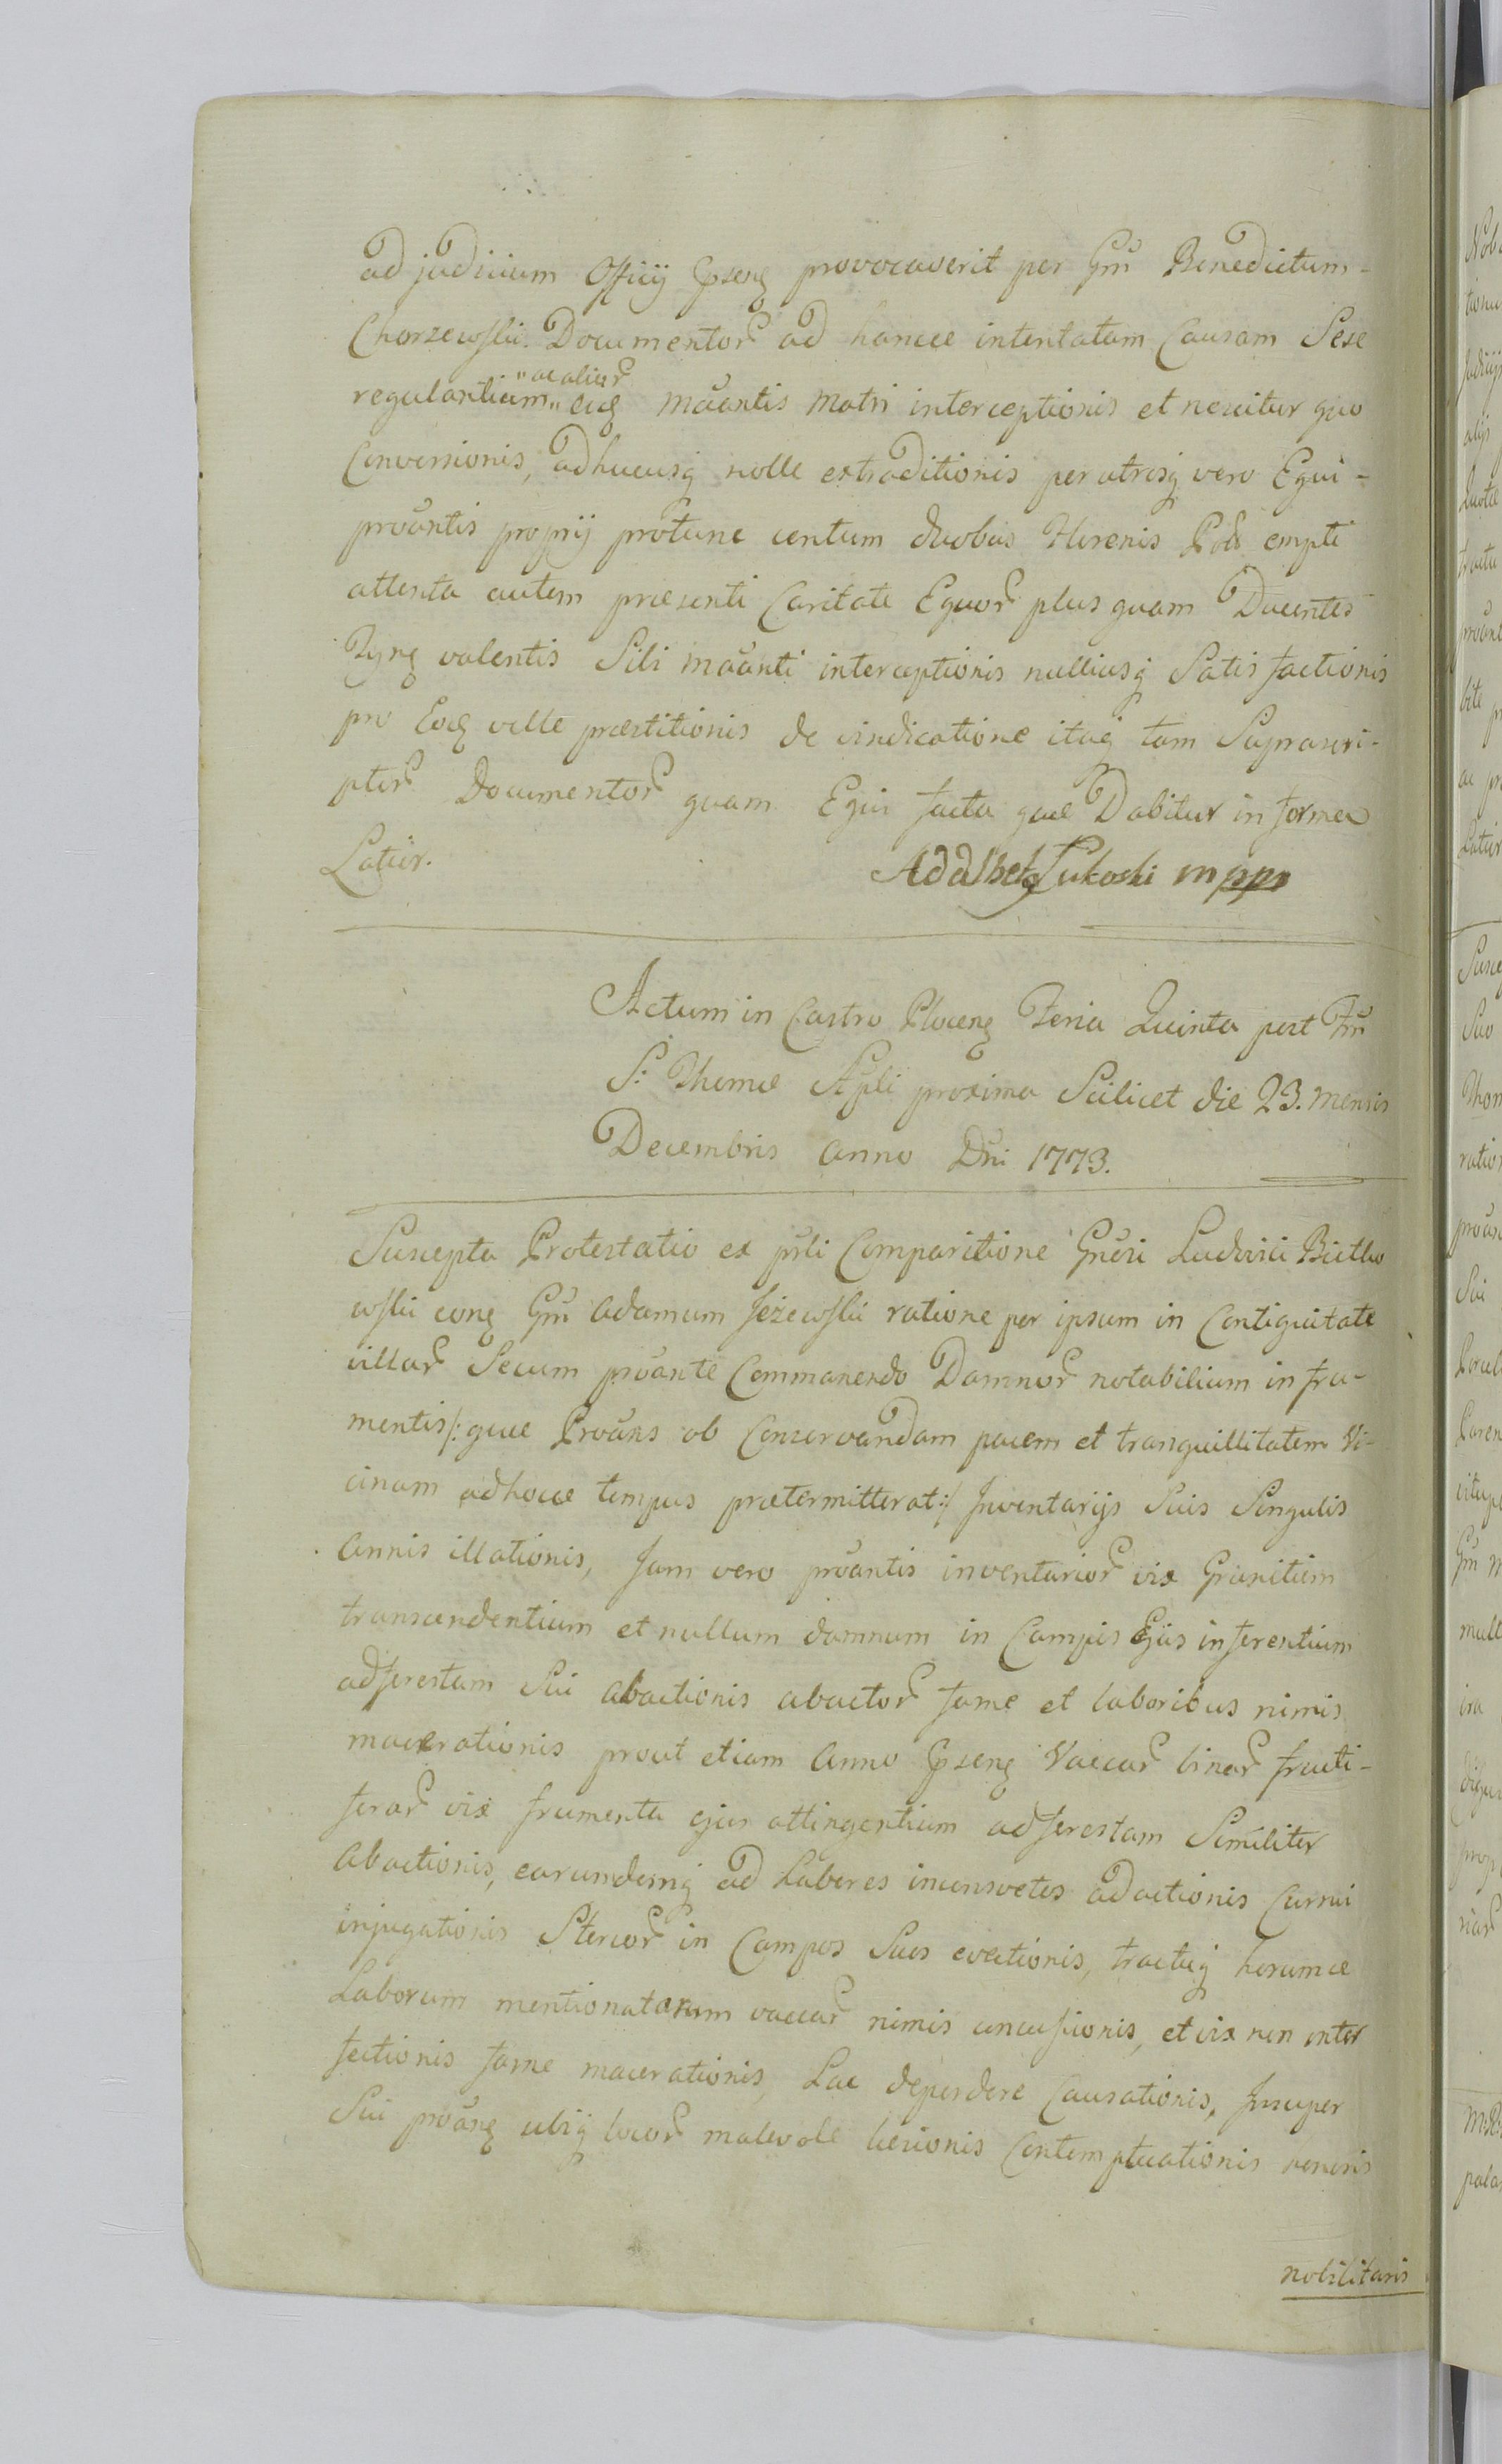 ad judicium Officij Ipseng provocaverit per Gm̃ Benedictum
Chorzewski Documentor ad hancce intentatam Causam Sese
"ac alior
regulantium" eidẽ mãntis Motri interceptionis et nescitur quo
Conversionis, adhucusq nolle extraditionis per utrosq vero Equi
prõantis proprij protunc centum duobus Florenis Pol empti
attenta autem præsenti Caritate Equor plus quam Ducentos
Tynq valentis Sibi mãnti interceptionis nulliusq Satis factionis
pro Eodẽ velle præstitionis de vindicatione itaq tam Suprascri-
ptor Documentor quam Equi facta quæ Dabitur in forma
Latior. Adalbet Łukoski mppr
Actum in Castro Plocenq Feria Quinta post Fm̃
S: Thomæ Apli proxima Scilicet die 23. mensis
Decembris Anno Dni 1773.
Suscepta Protestatio ex pñti Comparitione Gñosi Ludovici Bietko
wski conq Gm̃ Adamum Jeżewski ratione per ipsum in Contiguitate
villar Secum prõante Commanendo Damnor notabilium in fru-
mentis /: quæ Prõans ob Conservandam pacem et tranquillitatem Vi-
cinam adhocce tempus prætermitterat :/ Inventarijs Suis Singulis
Annis illationis, Jam vero prõantis inventarior vix Granitiem
transcendentium et nullum damnum in Campis Ejus inferentium
adferestam Sui abactionis abactor fame et laboribus nimis
macerationis prout etiam Anno Ipsenq Vaccar binar fructi-
ferar vix frumenta ejus attingentium adferestam Similiter
Abactionis, earundemq ad Labores inconsvetos adactionis Currui
injugationis Stercor in Campos Suos evectionis, tractuq horumce
Laborum mentionatarum vaccar nimis concussionis, et vix non inter
fectionis fame macerationis, Lac deperdere Causationis, Insuper
Sui prõanq ubiq locor malevole læsionis Contemptuationis honoris
nobilitaris